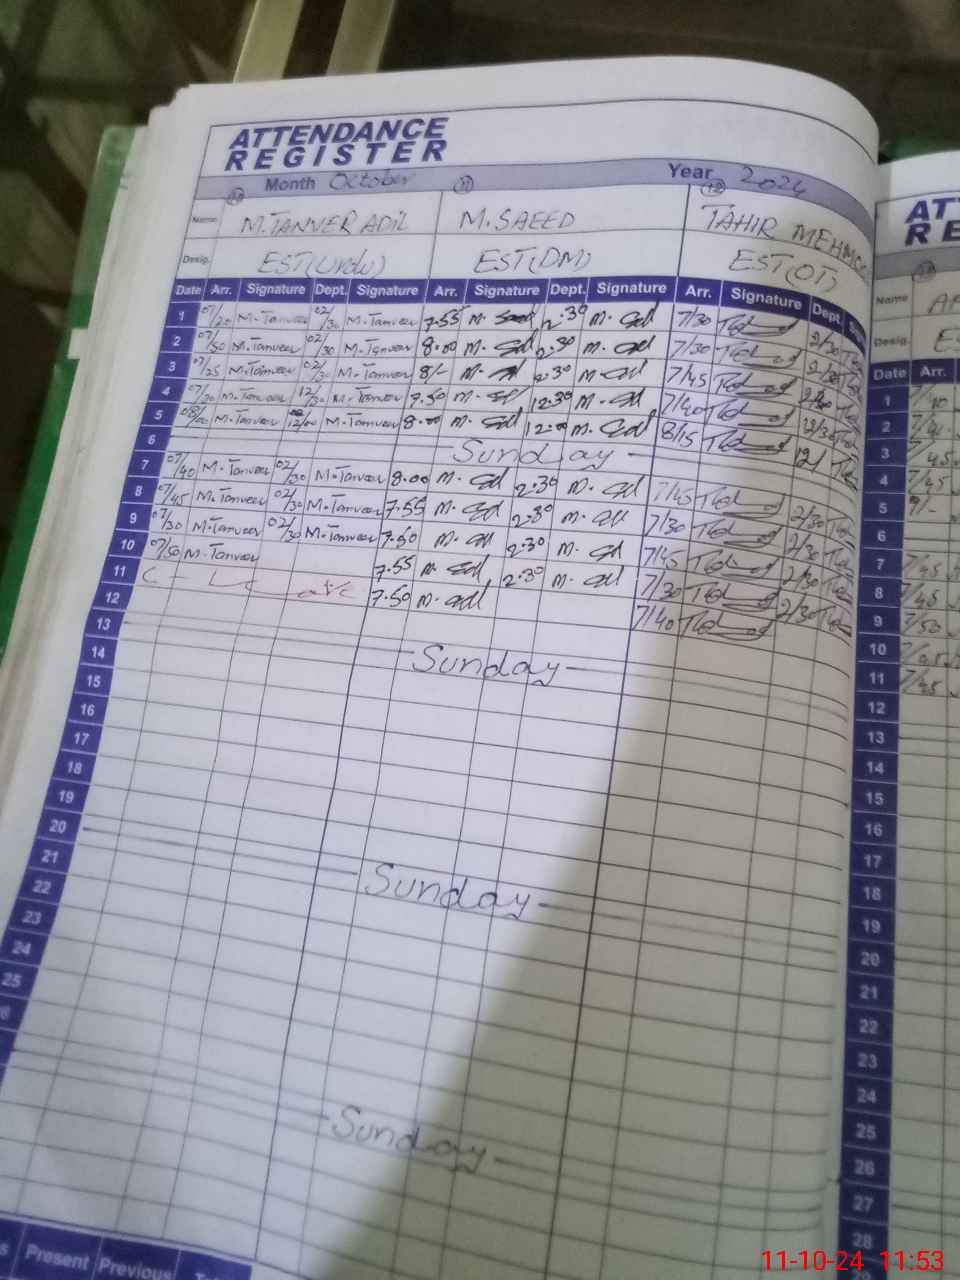 ATTENDANCE
REGISTER
Month October Year 2024
Name M.TANVER ADIL M.SAEED TAHIR MEHMOO
Desig. EST(Urdu) EST(DM) EST(OT)
Date Arr. Signature Dept. Signature Arr. Signature Dept. Signature Arr. Signature Dept.
1 07/20 M.Tanveer 02/30 M.Tanveer 7.55 2.30 M. Sd 7/30 2/30
2 07/50 M.Tanveer 02/30 M.Tanveer 8.00 M. Sd 2.30 M. Sd 7/30
3 07/25 M.Tanveer 02/30 M.Tanveer 8/- 2.30 M. Sd 7/45
4 07/30 M.Tanveer 12/30 M.Tanveer 7.50 12.30 M. Sd 7/40 12/30
5 08/00 M.Tanveer 12/00 M.Tanveer 8.00 M. Sd 12.00 M. Sd 8/15 12/
6 Sunday
7 07/40 M.Tanveer 02/30 M.Tanveer 8.00 M. Sd 2.30 M. Sd 7/45 2/30
8 07/45 M.Tanveer 02/30 M.Tanveer 7.55 M. Sd 2.30 M. Sd 7/30 2/30
9 07/30 M.Tanveer 02/30 M.Tanveer 7.50 M. Sd 2.30 M. Sd 7/45 2/30
10 07/50 M.Tanveer 7.55 M. Sd 2.30 M. Sd 7/30 2/30
11 C - Leave 7.50 M. Sd 7/40
12
13 Sunday
14
15
16
17
18
19
20 Sunday
21
22
23
24
25
Sunday
Present Previous
11-10-24 11:53
AT
RE
Name
Desig.
Date Arr.
1
2
3
4 7/45
5 9/-
6
7 7/45
8 7/45
9 7/50
10
11 7/45
12
13
14
15
16
17
18
19
20
21
22
23
24
25
26
27
28